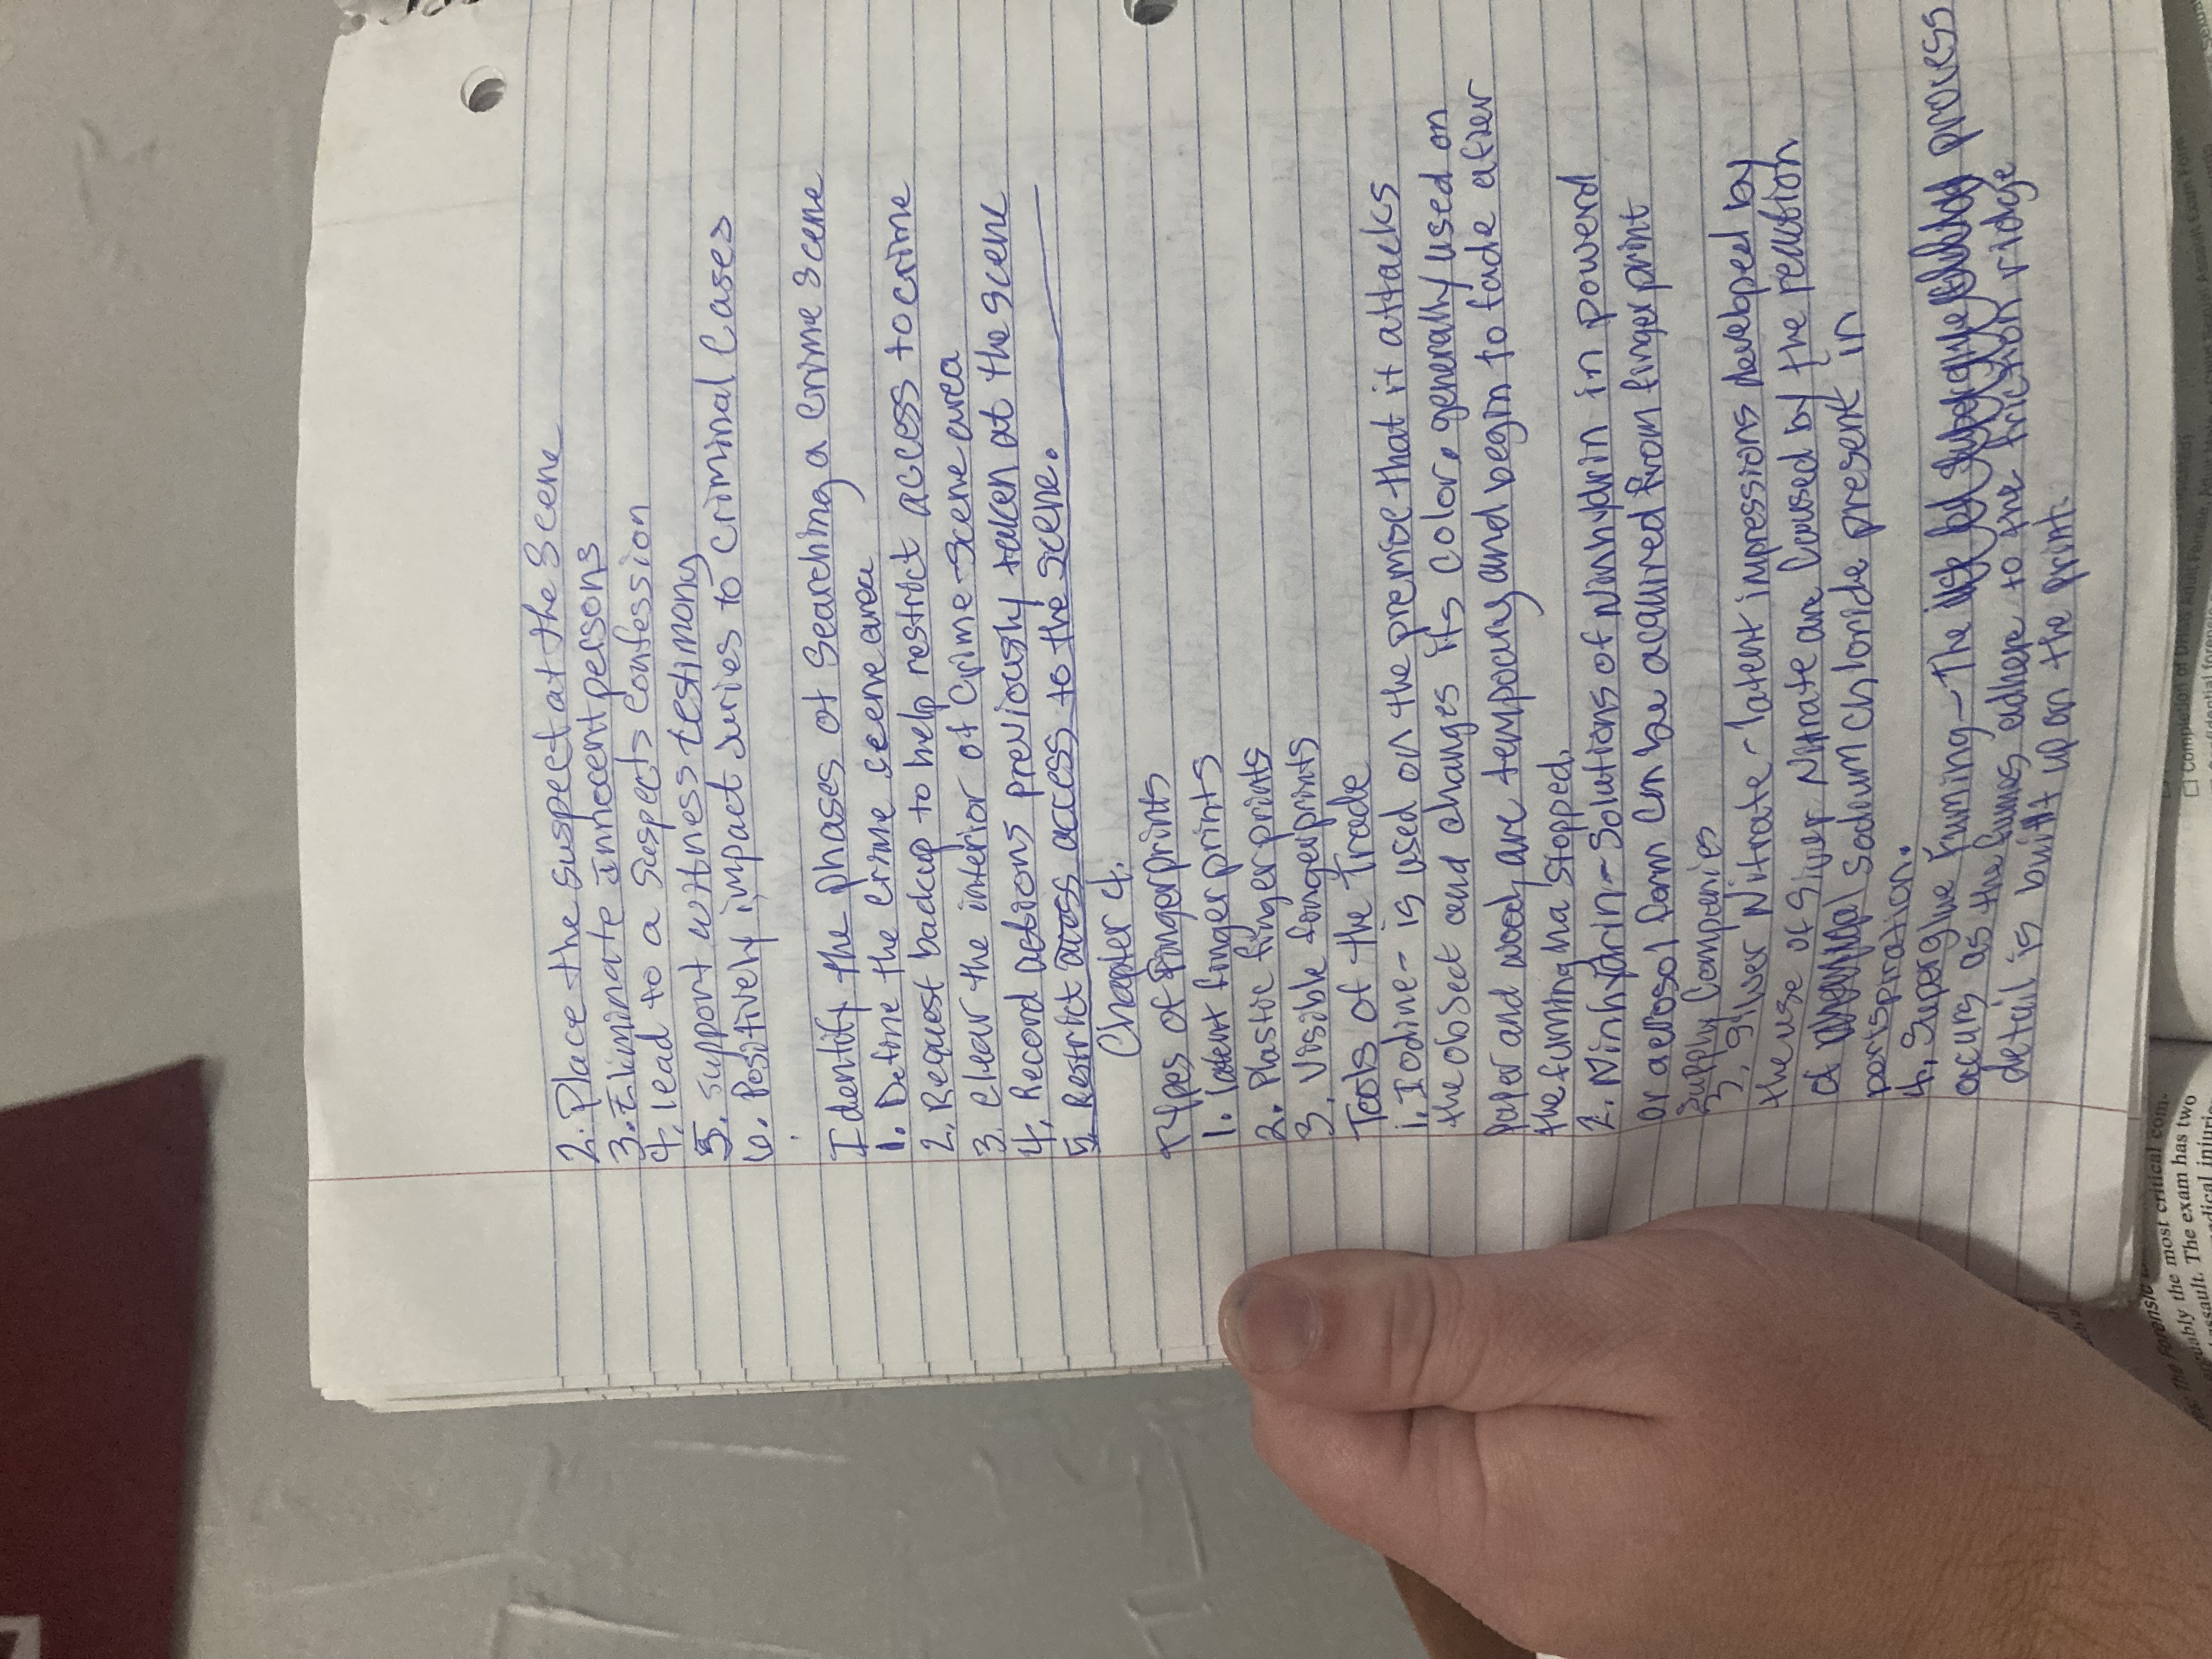 2. Place the suspect at the Scene
3. Eliminate innocent persons
4. lead to a suspects confession
5. support witness testimony
6. Positively impact juries to Criminal Cases
Identify the phases of Searching a Crime Scene
1. Define the crime scene area
2. Request backup to help restrict access to crime
3. Clear the interior of Crime-Scene area
4. Record actions previously taken at the scene
5. Restrict access to the scene.
Chapter 4.
Types of Fingerprints
1. latent fingerprints
2. Plastic fingerprints
3. Visible fingerprints
Tools of the Trade
1. Iodine - is used on the premise that it attacks
the object and changes its color, generally used on
paper and wood, are temporary and begin to fade after
the fuming has stopped.
2. Ninhydrin - Solutions of Ninhydrin in powerd
or aerosol form can be acquired from fingerprint
supply Companies
3. Silver Nitrate - latent impressions developed by
the use of Silver Nitrate are Caused by the reaction
of Sodium Chloride present in
perispiration.
4. Superglue Fuming - The process
occurs as the fumes adhere to the friction ridge
detail is built up on the print.
□ Completion of
the most critical com-
assault. The exam has two